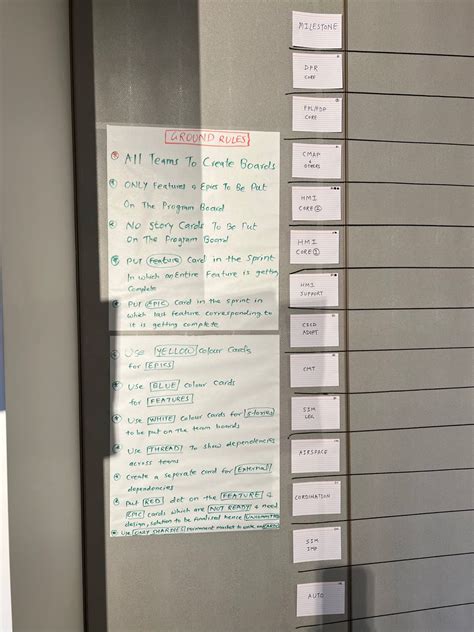 GROUND RULES
All Teams To Create Boards
ONLY Features & Epics To Be Put
On The Program Board
No Story Cards To Be Put
On The Program Board
Put Feature Card in the Sprint
In which an Entire Feature is getting
Complete
Put EPIC Card in the sprint in
which last feature corresponding to
it is getting complete
Use YELLOW Colour Cards
for EPICS
Use BLUE Colour Cards
for FEATURES
Use WHITE Colour Cards for Stories
to be put on the team boards
Use THREAD To show dependencies
across teams
Create a seperate card for External
dependencies
Put RED dot on the FEATURE &
EPIC cards which are NOT READY & need
design, solution to be finalised hence
Use ONLY SHARPIES permanent marker to write on
MILESTONE
DPR
CORE
CORE
CMAP &
OTHERS
HMI
CORE 2
HMI
CORE 1
HMI
SUPPORT
CICD
ADOPT
CMT
SIM
AIRSPACE
CORDINATION
SIM
IMP
AUTO